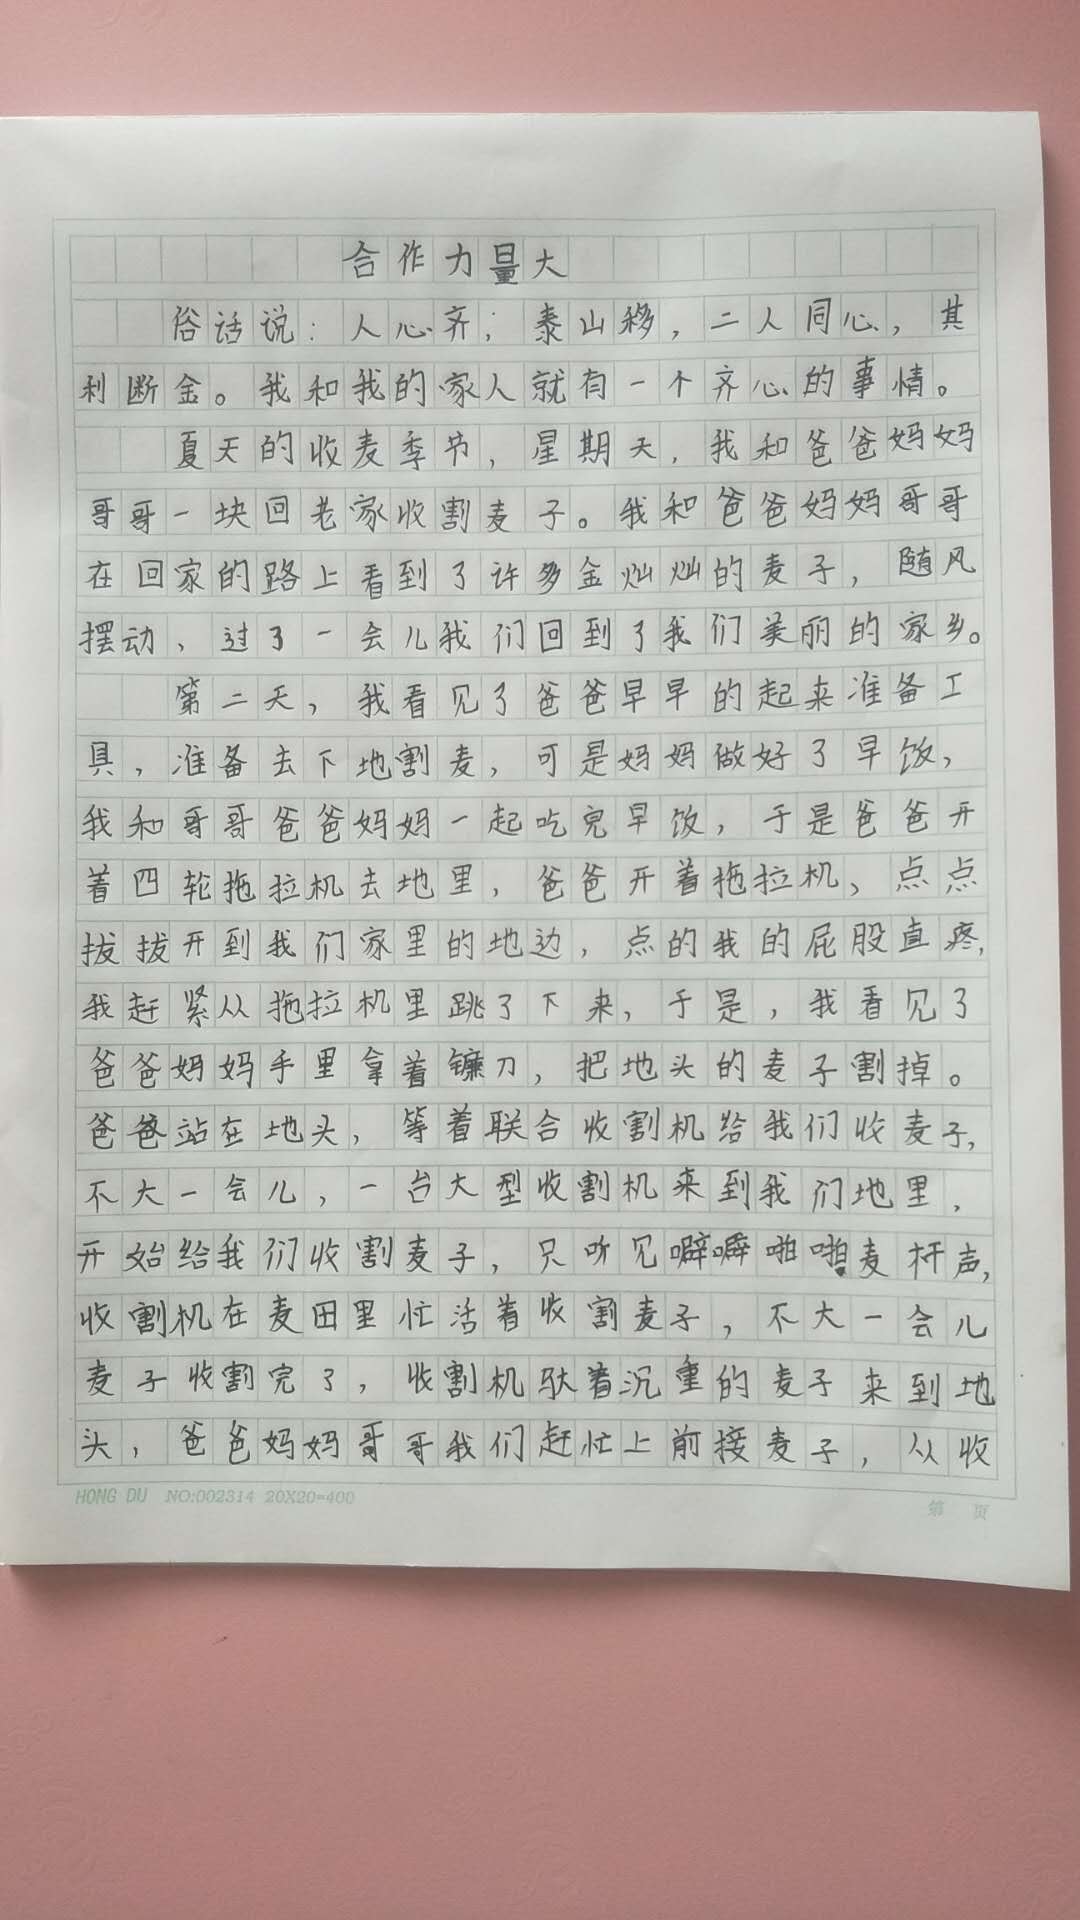 合作力量大
俗话说：人心齐；泰山移，二人同心，其
利断金。我和我的家人就有一个齐心的事情。
夏天的收麦季节，星期天，我和爸爸妈妈
哥哥一块回老家收割麦子。我和爸爸妈妈哥哥
在回家的路上看到了许多金灿灿的麦子，随风
摆动、过了一会儿我们回到了我们美丽的家乡。
第二天，我看见了爸爸早早的起来准备工
具，准备去下地割麦，可是妈妈做好了早饭，
我和哥哥爸爸妈妈一起吃完早饭，于是爸爸开
着四轮拖拉机去地里，爸爸开着拖拉机、点点
拔拔开到我们家里的地边，点的我的屁股直疼，
我赶紧从拖拉机里跳了下来，于是，我看见了
爸爸妈妈手里拿着镰刀，把地头的麦子割掉。
爸爸站在地头，等着联合收割机给我们收麦子，
不大一会儿，一台大型收割机来到我们地里，
开始给我们收割麦子，只听见噼噼啪啪麦杆声，
收割机在麦田里忙活着收割麦子，不大一会儿
麦子收割完了，收割机驮着沉重的麦子来到地
头，爸爸妈妈哥哥我们赶忙上前接麦子，从收
HONG DU NO:002314 20X20=400
第 页